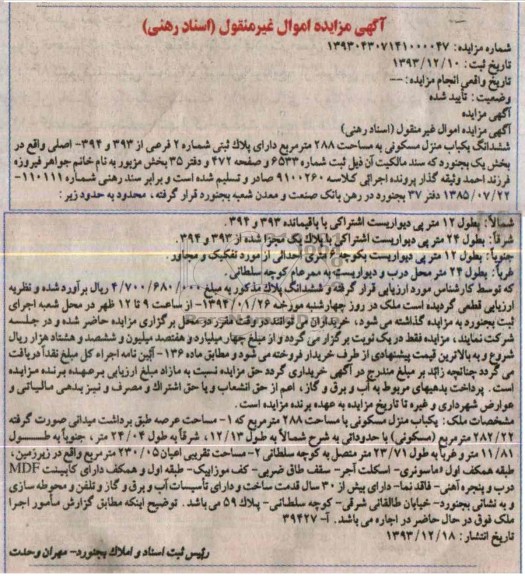 آگهی مزایده اموال غیرمنقول (اسناد رهنی)
شماره مزایده: ۱۳۹۳۰۴۳۰۷۱۴۱۰۰۰۰۴۷
تاریخ ثبت: ۱۳۹۳/۱۲/۱۰
تاریخ واقعی انجام مزایده: --
وضعیت: تأیید شده
آگهی مزایده
آگهی مزایده اموال غیرمنقول (اسناد رهنی)
ششدانگ یکباب منزل مسکونی به مساحت ۲۸۸ مترمربع دارای پلاک ثبتی شماره ۲ فرعی از ۳۹۳ و ۳۹۴- اصلی واقع در
بخش یک بجنورد که سند مالکیت آن ذیل ثبت شماره ۶۵۳۳ و صفحه ۴۷۲ و دفتر ۳۵ بخش مزبور به نام خانم جواهر فیروزه
فرزند احمد وثیقه گذار پرونده اجرائی کلاسه ۹۱۰۰۲۶۰ صادر و تسلیم شده است و برابر سند رهنی شماره ۱۱۰۱۱۱-
۱۳۸۵/۰۷/۲۲ دفتر ۳۷ بجنورد در رهن بانک صنعت و معدن شعبه بجنورد قرار گرفته، محدود به حدود زیر:
شمالاً: بطول ۱۲ متر پی دیواریست اشتراکی با باقیمانده ۳۹۳ و ۳۹۴.
شرقاً: بطول ۲۴ متر پی دیواریست اشتراکی با پلاک یک مجزا شده از ۳۹۳ و ۳۹۴.
جنوباً: بطول ۱۲ متر پی دیواریست بکوچه متری احداثی از مورد تفکیک و مجاور.
غرباً: بطول ۲۴ متر محل درب و دیواریست به ممرعام کوچه سلطانی.
که توسط کارشناس مورد ارزیابی قرار گرفته و ششدانگ پلاک مذکور به مبلغ ۴/۷۰۰/۶۸۰/۰۰۰ ریال برآورد شده و نظریه
ارزیابی قطعی گردیده است ملک در روز چهارشنبه مورخه ۱۳۹۴/۰۱/۲۶- از ساعت ۹ تا ۱۲ ظهر در محل شعبه اجرای
ثبت بجنورد به مزایده گذاشته می شود، خریداران می توانند در وقت مقرر در محل برگزاری مزایده حاضر شده و در جلسه
شرکت نمایند، مزایده فقط در یک نوبت برگزار می گردد و از مبلغ چهار میلیارد و هفتصد میلیون و ششصد و هشتاد هزار ریال
شروع و به بالاترین قیمت پیشنهادی از طرف خریدار فروخته می شود و مطابق ماده ۱۳۶- آئین نامه اجراء کل مبلغ نقداً دریافت
می گردد چنانچه زائد بر مبلغ مندرج در آگهی خریداری گردد حق مزایده نسبت به مازاد مبلغ ارزیابی برعهده برنده مزایده
است. پرداخت بدهیهای مربوط به آب و برق و گاز، اعم از حق انشعاب و یا حق اشتراک و مصرف و نیز بدهی مالیاتی و
عوارض شهرداری و غیره تا تاریخ مزایده به عهده برنده مزایده است.
مشخصات ملک: یکباب منزل مسکونی با مساحت ۲۸۸ مترمربع که ۱- مساحت عرصه طبق برداشت میدانی صورت گرفته
۲۸۲/۲۲ مترمربع (مسکونی) با حدوداتی به شرح شمالاً به طول ۱۲/۱۳، شرقاً به طول ۲۴/۰۴ متر، جنوباً به طول
۱۱/۸۱ متر و غرباً به طول ۲۳/۷۱ متر متصل به کوچه سلطانی ۲- مساحت تقریبی اعیان ۲۳۰/۰۵ مترمربع واقع در زیرزمین،
طبقه همکف اول «ماسونری- اسکلت آجر- سقف طاق ضربی- کف موزاییک- طبقه اول و همکف دارای کابینت MDF
درب و پنجره آهنی- فاقد نما- دارای بیش از ۳۰ سال قدمت ساخت و دارای تأسیسات آب و برق و گاز و تلفن و محوطه سازی
و به نشانی بجنورد- خیابان طالقانی شرقی- کوچه سلطانی- پلاک ۵۹ می باشد. توضیح اینکه مطابق گزارش مأمور اجرا
ملک فوق در حال حاضر در اجاره می باشد. آ- ۳۹۴۲۷
تاریخ انتشار: ۱۳۹۳/۱۲/۱۸
رئیس ثبت اسناد و املاک بجنورد- مهران وحدت